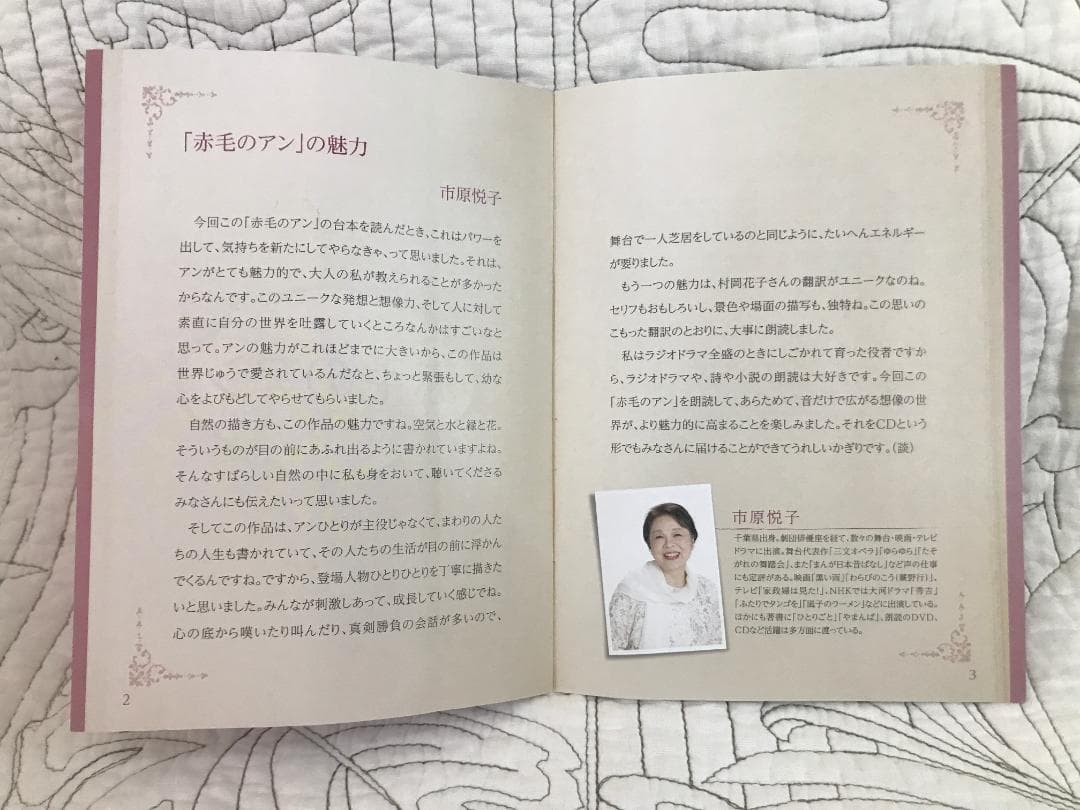 「赤毛のアン」の魅力
市原悦子
今回この「赤毛のアン」の台本を読んだとき、これはパワーを
出して、気持ちを新たにしてやらなきゃ、って思いました。それは、
アンがとても魅力的で、大人の私が教えられることが多かった
からなんです。このユニークな発想と想像力、そして人に対して
素直に自分の世界を吐露していくところなんかはすごいなと
思って。アンの魅力がこれほどまでに大きいから、この作品は
世界じゅうで愛されているんだなと、ちょっと緊張もして、幼な
心をよびもどしてやらせてもらいました。
自然の描き方も、この作品の魅力ですね。空気と水と緑と花。
そういうものが目の前にあふれ出るように書かれていますよね。
そんなすばらしい自然の中に私も身をおいて、聴いてくださる
みなさんにも伝えたいって思いました。
そしてこの作品は、アンひとりが主役じゃなくて、まわりの人た
ちの人生も書かれていて、その人たちの生活が目の前に浮かん
でくるんですね。ですから、登場人物ひとりひとりを丁寧に描きた
いと思いました。みんなが刺激しあって、成長していく感じでね。
心の底から嘆いたり叫んだり、真剣勝負の会話が多いので、
2
舞台で一人芝居をしているのと同じように、たいへんエネルギー
が要りました。
もう一つの魅力は、村岡花子さんの翻訳がユニークなのね。
セリフもおもしろいし、景色や場面の描写も、独特ね。この思いの
こもった翻訳のとおりに、大事に朗読しました。
私はラジオドラマ全盛のときにしごかれて育った役者ですか
ら、ラジオドラマや、詩や小説の朗読は大好きです。今回この
「赤毛のアン」を朗読して、あらためて、音だけで広がる想像の世
界が、より魅力的に高まることを楽しみました。それをCDという
形でもみなさんに届けることができてうれしいかぎりです。（談）
市原悦子
千葉県出身。劇団俳優座を経て、数々の舞台・映画・テレビ
ドラマに出演。舞台代表作「三文オペラ」「ゆらゆら」「たそ
がれの舞踏会」、また「まんが日本昔ばなし」など声の仕事
にも定評がある。映画「黒い雨」「わらびのこう（蕨野行）」、
テレビ「家政婦は見た!」、NHKでは大河ドラマ「秀吉」
「ふたりでタンゴを」「風子のラーメン」などに出演している。
ほかにも著書に「ひとりごと」「やまんば」、朗読のDVD、
CDなど活躍は多方面に渡っている。
3